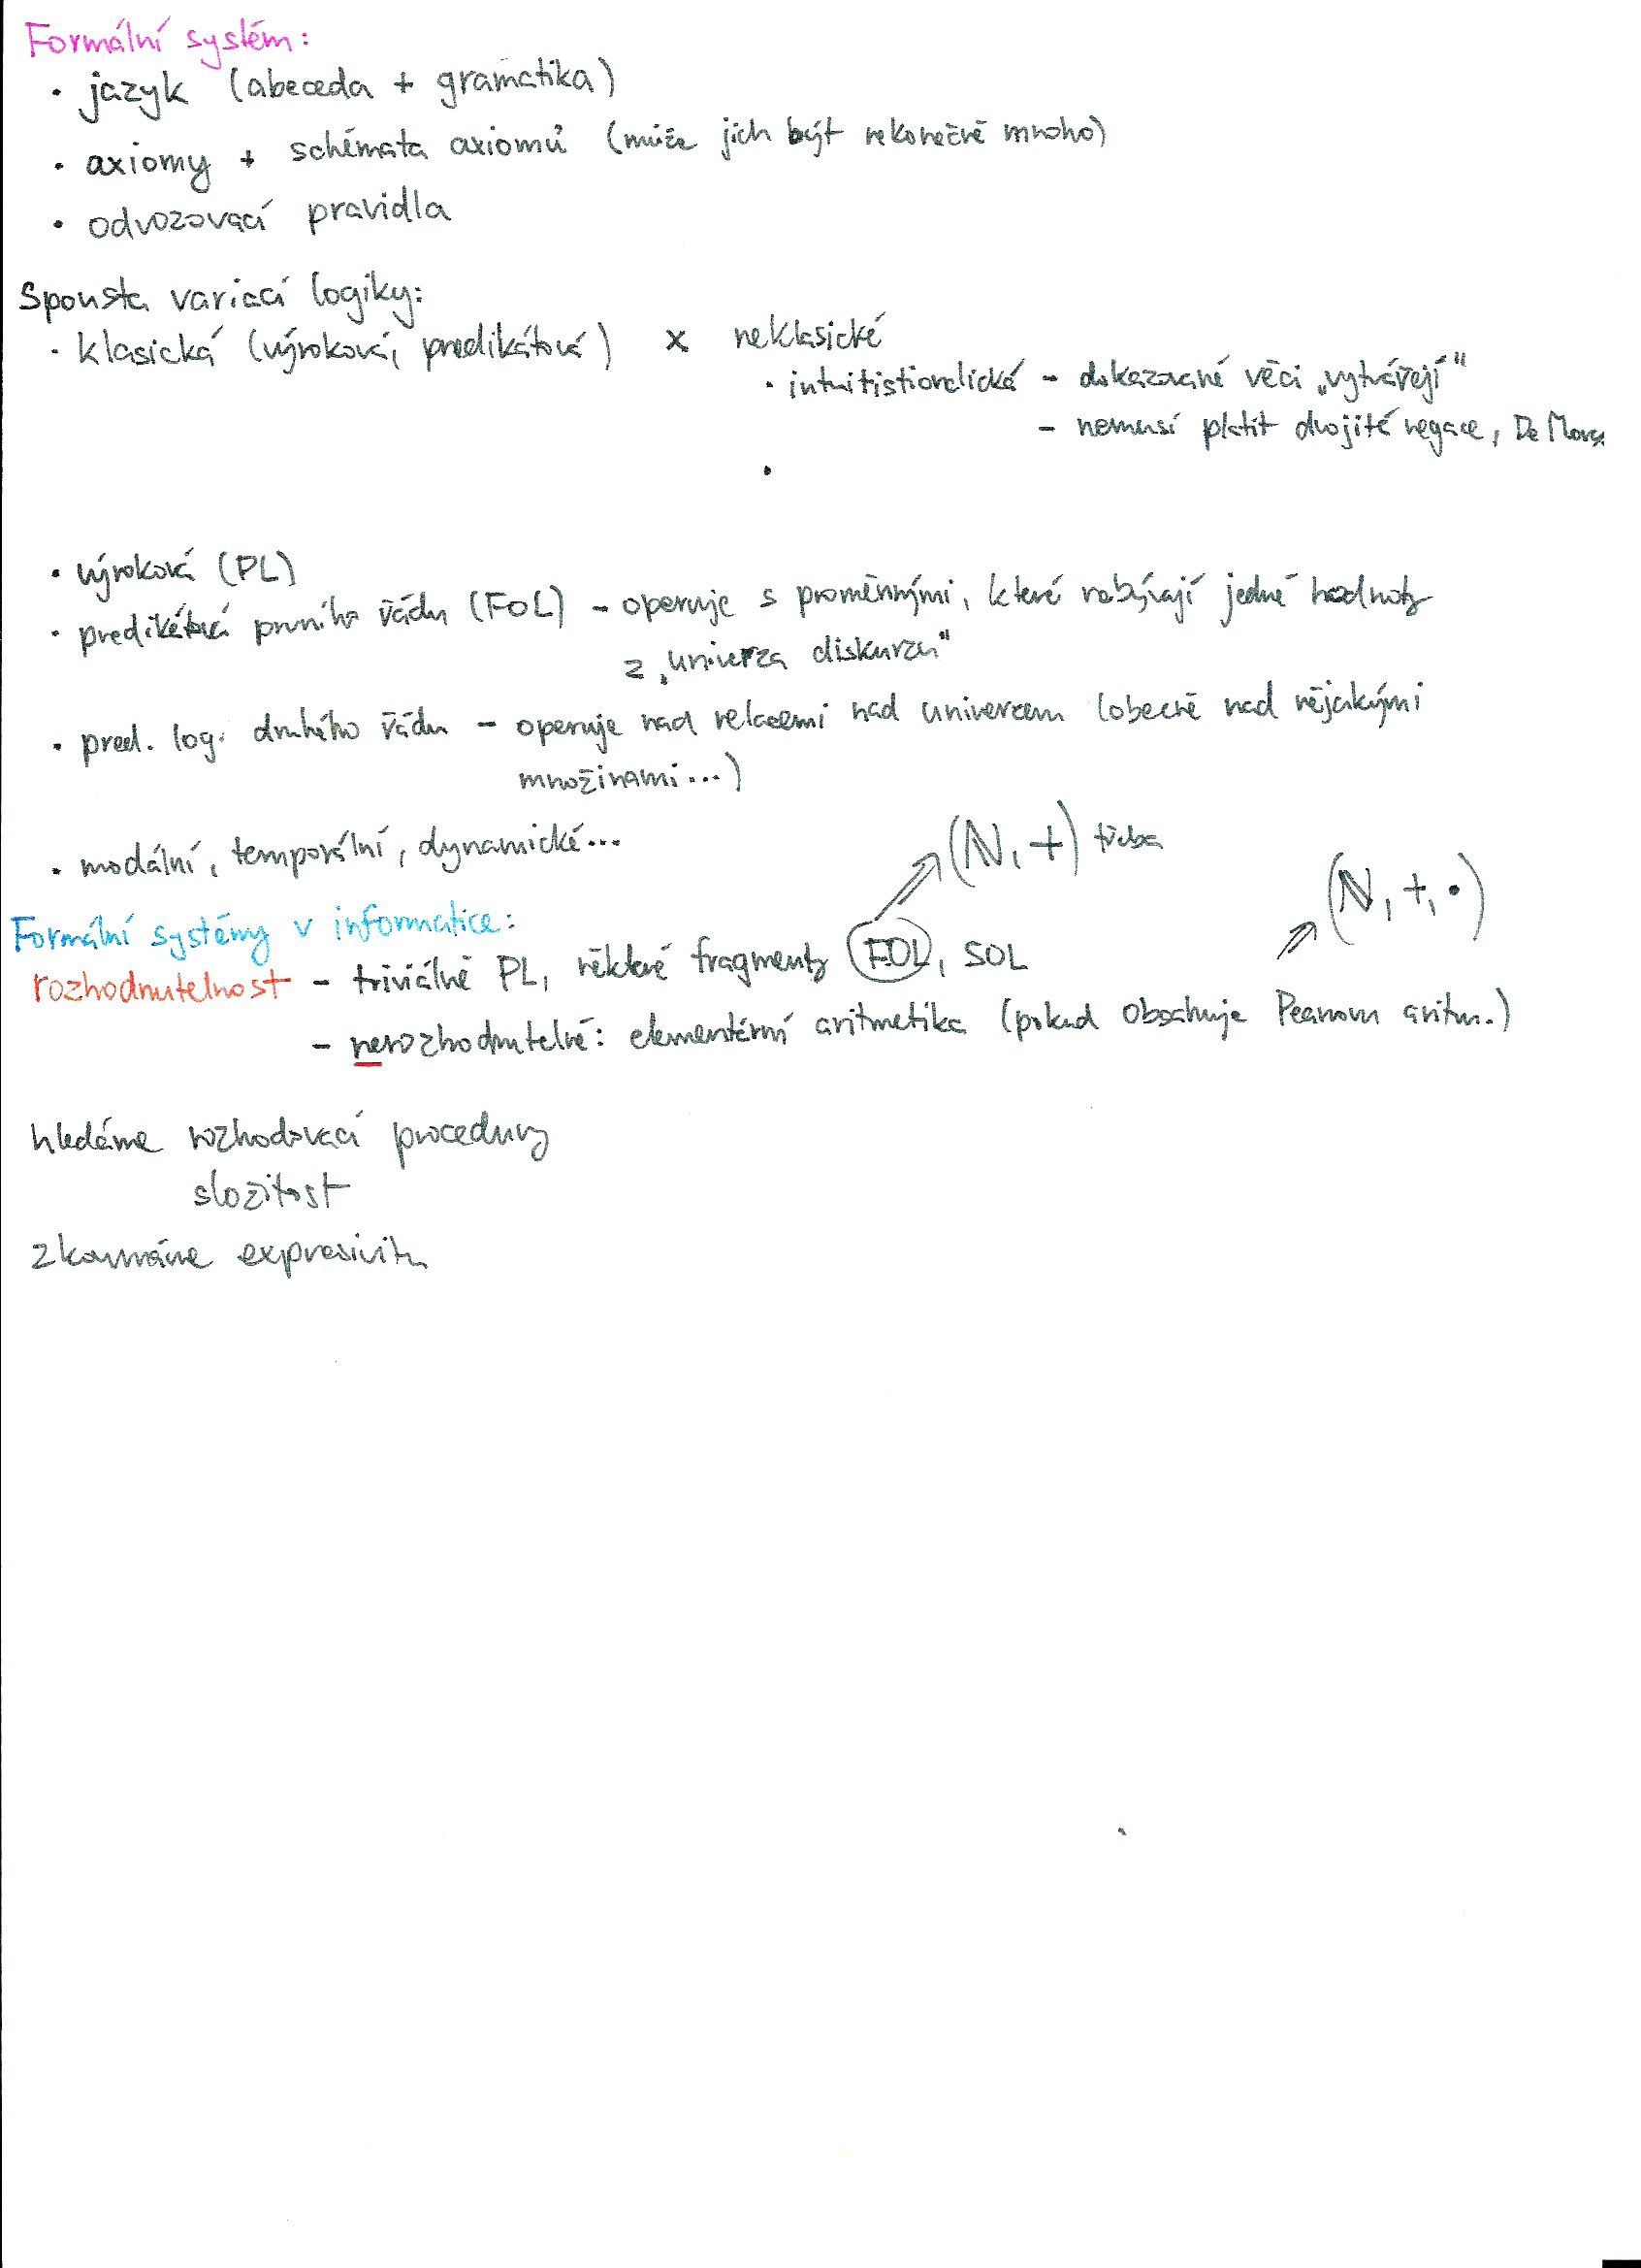 Formální systém:
• jazyk (abeceda + gramatika)
• axiomy + schémata axiomů (může jich být nekonečně mnoho)
• odvozovací pravidla
Spousta variací logiky:
• klasická (výroková, predikátová) x neklasické
• intuitistionalická - dokazované věci „vytvářejí"
- nemusí platit dvojité negace, De Morg.
•
• výroková (PL)
• predikátová prvního řádu (FOL) - operuje s proměnnými, které nabývají jedné hodnoty
z „univerza diskurzu"
• pred. log. druhého řádu - operuje nad relacemi nad univerzem (obecně nad nějakými
množinami...)
• modální, temporální, dynamické...
(ℕ, +) třeba
(ℕ, +, •)
Formální systémy v informatice:
rozhodnutelnost - triviálně PL, některé fragmenty FOL, SOL
- nerozhodnutelné: elementární aritmetika (pokud obsahuje Peanovu aritm.)
hledáme rozhodovací procedury
složitost
zkoumáme expresivitu